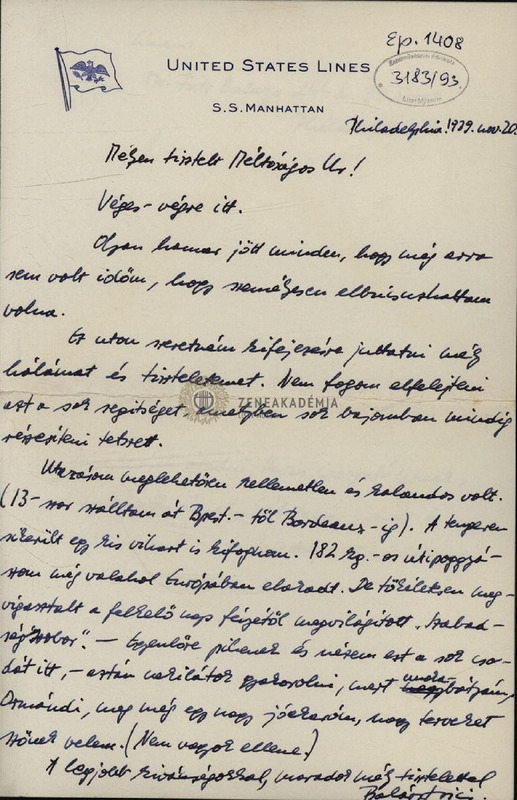 Ep. 1408
3183/93.
UNITED STATES LINES
S.S. MANHATTAN
Philadelphia. 1939. nov. 20.
Mélyen tisztelt Méltóságos Ur!
Véges-végre itt.
Olyan hamar jött minden, hogy még arra
sem volt időm, hogy személyesen elbúcsuzhattam
volna.
Ez uton szeretném kifejezésre juttatni mély
hálámat és tiszteletemet. Nem fogom elfelejteni
azt a sok segitséget, amelyben sok bajomban mindig
részesiteni tetszett.
ZENEAKADÉMIA
Utazásom meglehetősen kellemetlen és kalandos volt.
(13-szor szálltam át Brest.-től Bordeaux-ig). A tengeren
sikerült egy kis vihart is kifognom. 182 kg.-os útipoggyá-
szom még valahol Európában elakadt. De tökéletesen meg-
vigasztalt a felkelő nap fényétől megvilágított „Szabad-
ság szobor". — Egyenlőre pihenek és nézem ezt a sok cso-
dát itt, — aztán nekilátok gyakorolni, mert bátyám,
Ormándi, meg még egy nagy jóakaróm, nagy terveket
szőnek velem. (Nem vagyok ellene.)
A legjobb kivánságokkal, maradok mély tisztelettel